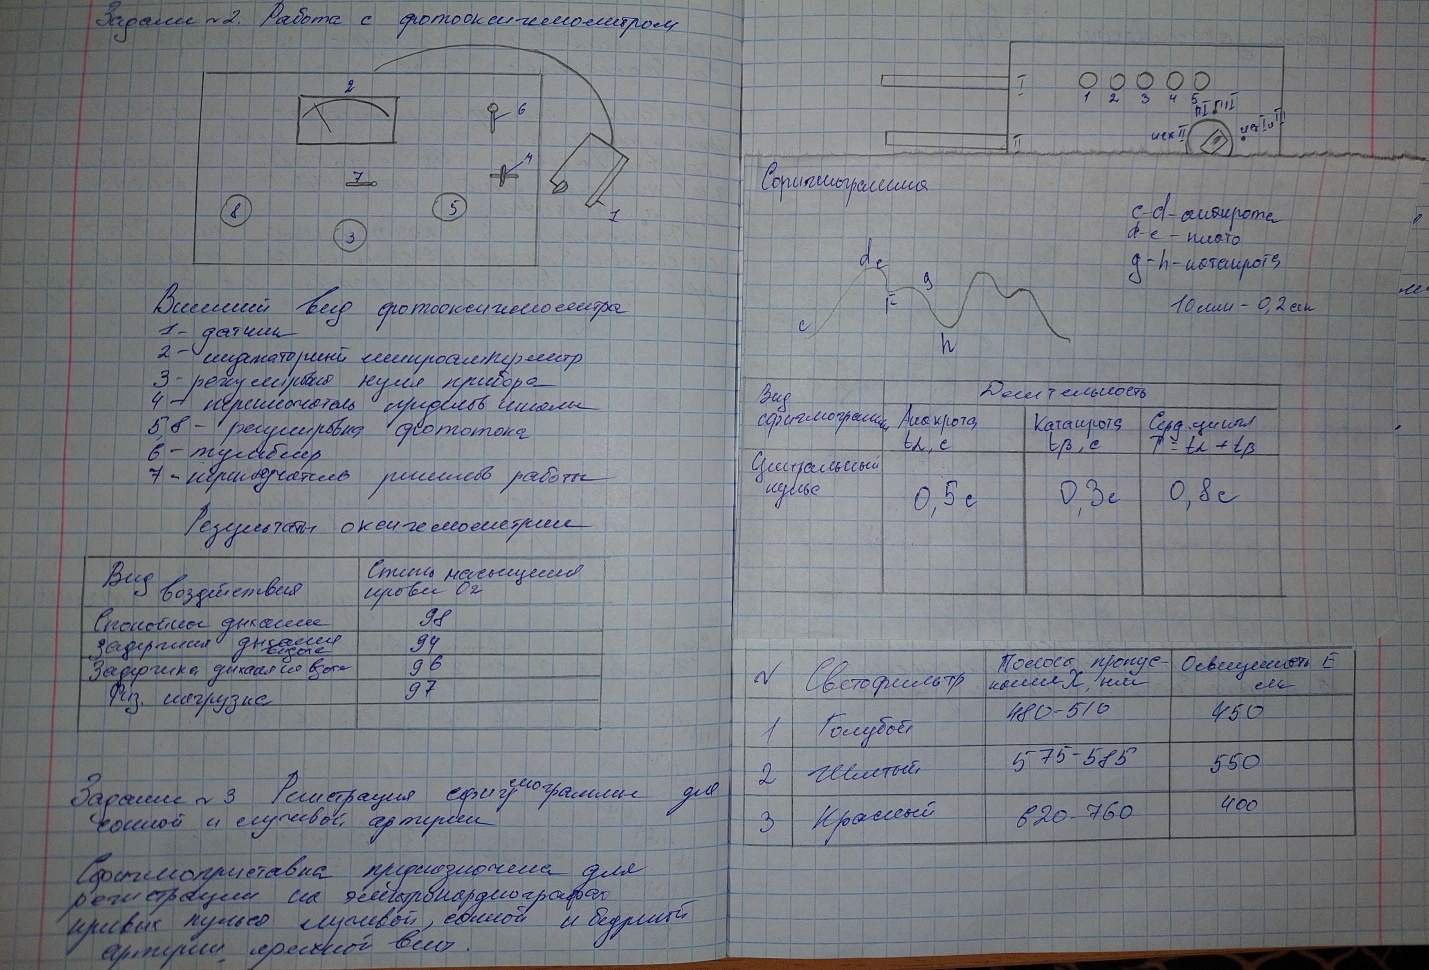 Задание №2. Работа с фотооксигемометром
2
6
7
4
8
5
3
1
Внешний вид фотооксигемометра
1 - датчик
2 - индикаторный микроамперметр
3 - регулировка нуля прибора
4 - переключатель пределов шкалы
5,8 - регулировка фототока
6 - тумблер
7 - переключатель режимов работы
Результаты оксигемометрии
Вид воздействия
Степень насыщения крови O2
Спокойное дыхание 98
Задержка дыхания 94
Задержка дыхания 96
Физ. нагрузка 97
Задание №3 Регистрация сфигмограммы для
сонной и лучевой артерии
Сфигмоприставка предназначена для
регистрации на электрокардиографах
кривых пульса лучевой, сонной и бедренной
артерии, яремной вены.
I
II
1 2 3 4 5
III
Сфигмограмма
c-d - анакрота
d-e - плато
g-h - катакрота
10мм - 0,2сек
d e
g
F
c
h
Вид сфигмограммы
Длительность
Анакрота tα, с
Катакрота tβ, с
Серд. цикла T = tα + tβ
Центральный пульс
0,5с 0,3с 0,8с
№ Светофильтр Полоса пропускания X, нм Освещенность E лк
1 Голубой 480-510 450
2 Желтый 575-585 550
3 Красный 620-760 400